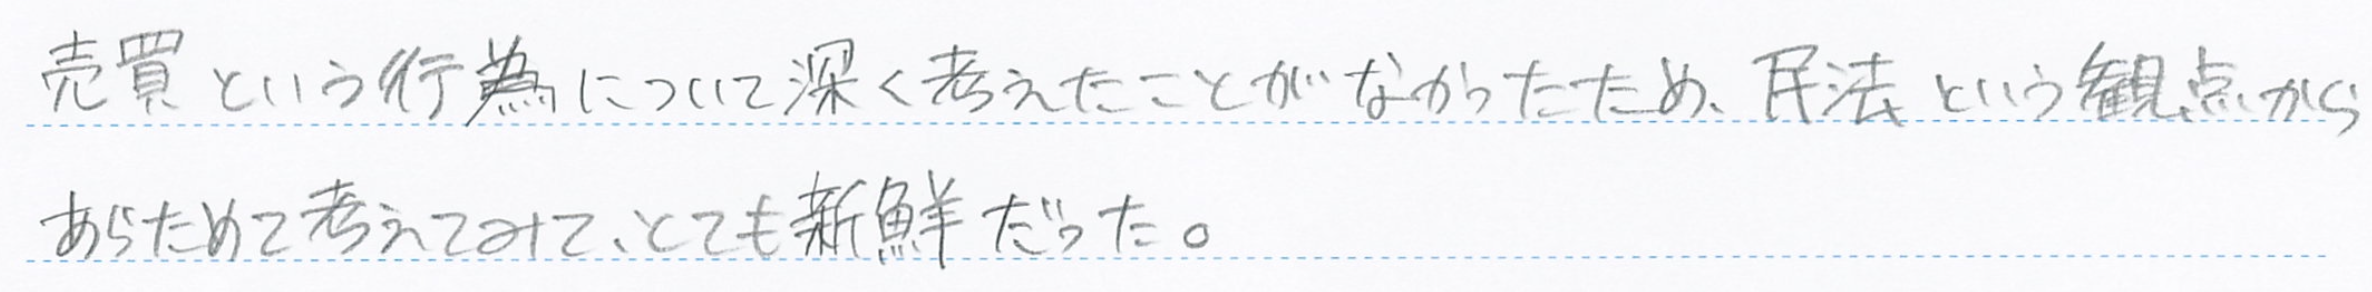 売買という行為について深く考えたことがなかったため、民法という観点から
あらためて考えてみて、とても新鮮だった。